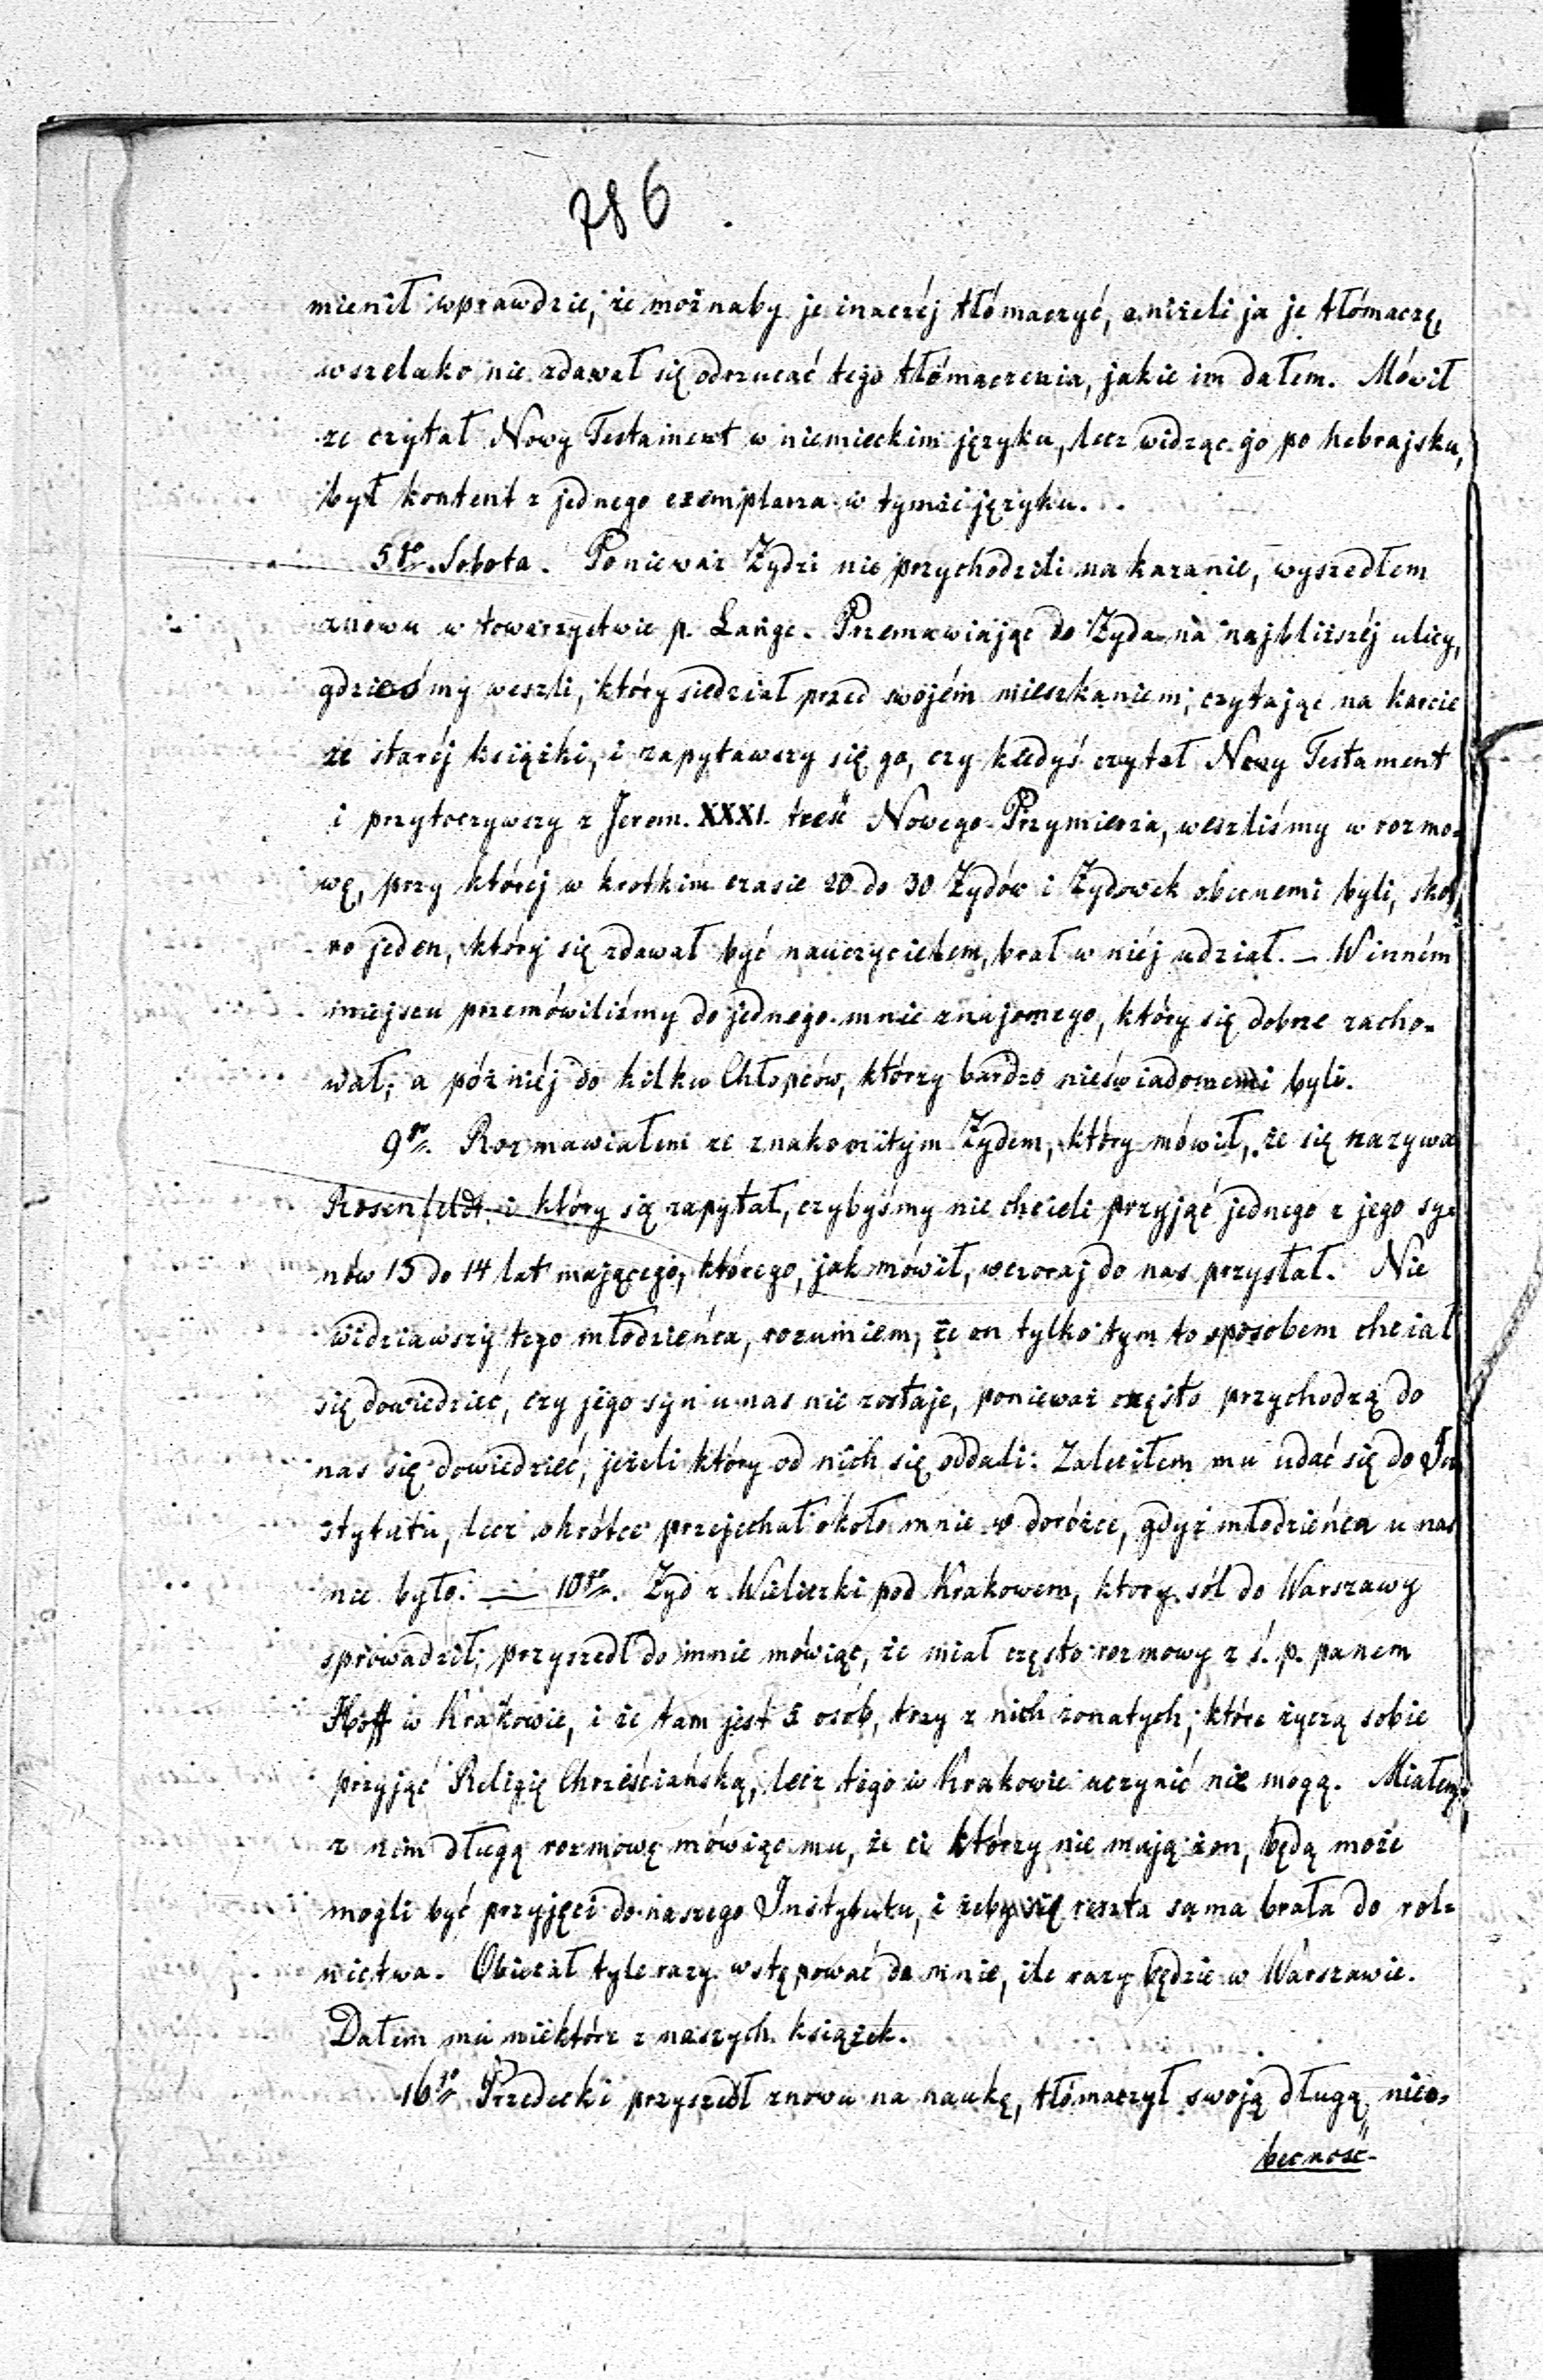 786
mienił wprawdzie, że możnaby je inaczéj tłómaczyć, aniżeli ja je tłómaczę,
wszelako nie zdawał się odrzucać tego tłómaczenia, jakie im dałem. Mówił
że czytał Nowy Testament w niemieckim języku, lecz widząc go po hebrajsku,
był kontent z jednego exemplarza w tymże języku.
5go. Sobota. Ponieważ Żydzi nie przychodzili na kazanie, wyszedłem
znowu w towarzystwie p. Lange. Przemawiając do Żyda na najbliższéj ulicy,
gdzieśmy weszli, który siedział przed swojém mieszkaniem, czytając na karcie
ze staréj książki, i zapytawszy się go, czy kiedyś czytał Nowy Testament
i przytoczywszy z Jerem. XXXI. treść Nowego Przymierza, weszliśmy w rozmo-
wę, przy któréj w krotkim czasie 20 do 30 Żydów i Żydowek obecnemi byli, sko-
ro jeden, który się zdawał być nauczycielem, brał w niéj udział. — W inném
miejscu przemówiliśmy do jednego mnie znajomego, który się dobrze zacho-
wał, a późniéj do kilku Chłopców, którzy bardzo nieświadomemi byli.
9go. Rozmawiałem ze znakomitym Żydem, który mówił, że się nazywa
Rosenfeldt i który się zapytał, czybyśmy nie chcieli przyjąć jednego z jego sy-
nów 13 do 14 lat mającego, którego, jak mówił, wczoraj do nas przysłał. Nie
widziawszy tego młodzieńca, rozumiem, że on tylko tym to sposobem chciał
się dowiedzieć, czy jego syn u nas nie zostaje, ponieważ często przychodzą do
nas się dowiedzieć, jeżeli który od nich się oddali. Zaleciłem mu udać się do In-
stytutu, lecz wkrótce przejechał około mnie w dorożce, gdyż młodzieńca u nas
nie było. — 10go. Żyd z Wieliczki pod Krakowem, ktory sól do Warszawy
sprowadził, przyszedł do mnie mówiąc, że miał często rozmowy z ś. p. panem
Hoff w Krakowie, i że tam jest 5 osób, trzy z nich żonatych, które życzą sobie
przyjąć Religię Chrześciańską, lecz tego w Krakowie uczynić nie mogą. Miałem
z nim długą rozmowę mówiąc mu, że ci którzy nie mają żon, będą może
mogli być przyjęci do naszego Instytutu, i żeby się reszta sama brała do rol-
nictwa. Obiecał tyle razy wstępować do mnie, ile razy będzie w Warszawie.
Dałem mu niektóre z naszych książek.
16go Przedecki przyszedł znowu na naukę, tłómaczył swoją długą nieo-
becność